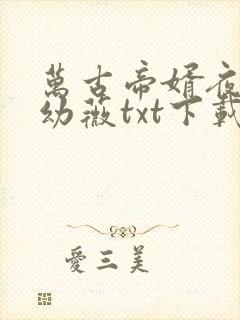 萬古帝婿夜
幼薇txt下載
愛三美